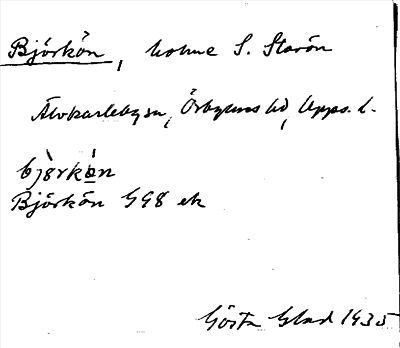 Björkön, holme S. Storön
Älvkarleby sn, Örbyhus hd, Upps. l.
bjòrkòn
Björkön GGB ek
Gösta Glad 1935